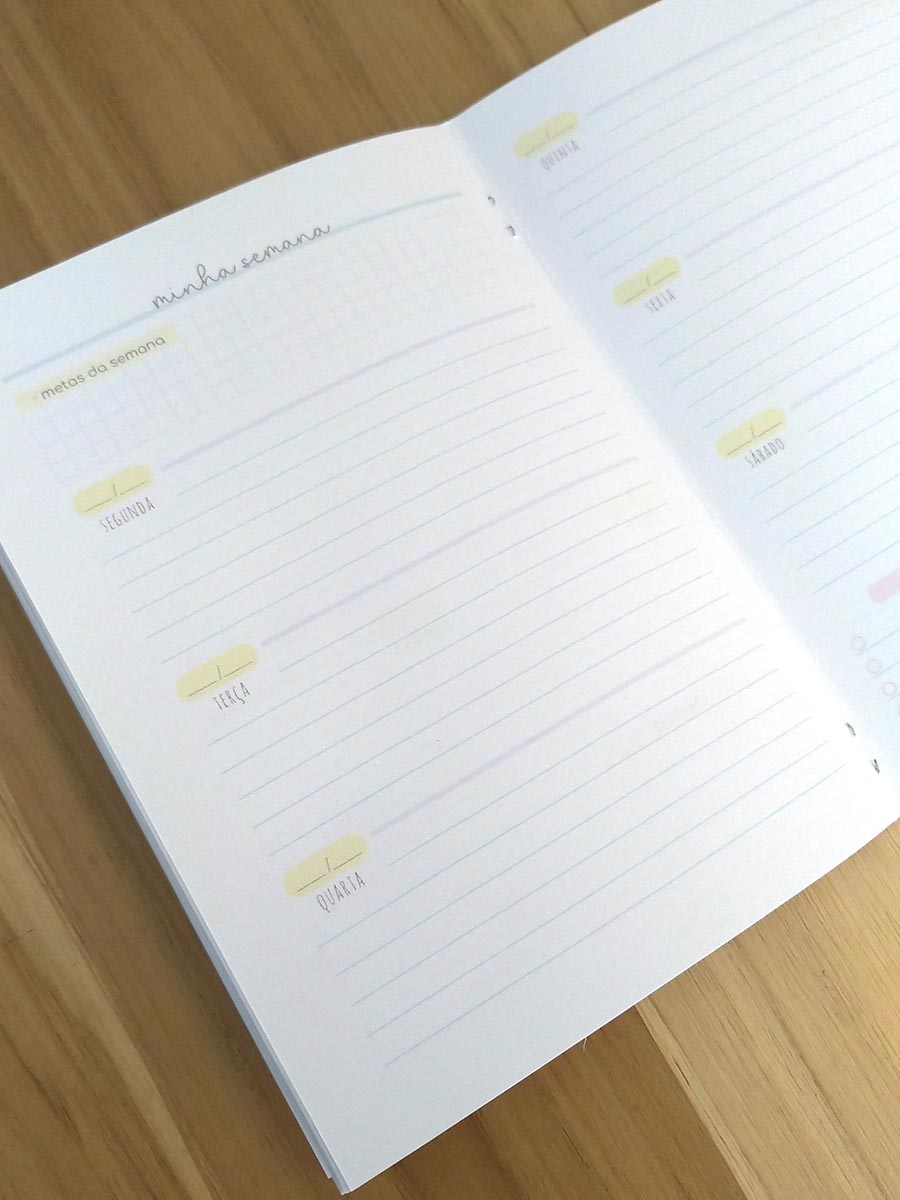 minha semana
* metas da semana
__/__
SEGUNDA
__/__
TERÇA
__/__
QUARTA
__/__
QUINTA
__/__
SEXTA
__/__
SÁBADO